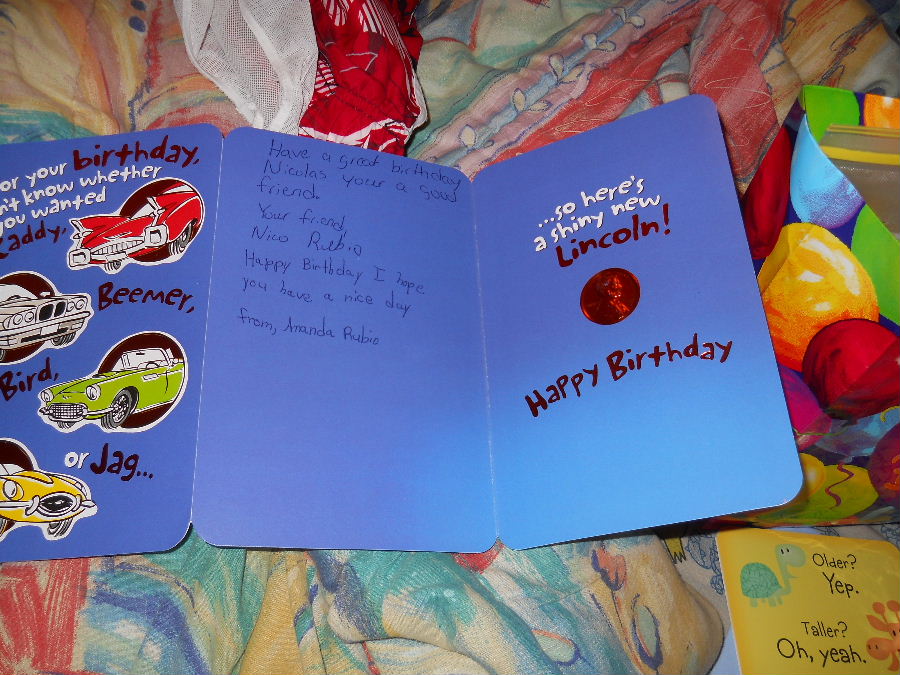 or your birthday,
n't know whether
you wanted
Caddy,
Beemer,
Bird,
or Jag...
Have a great birthday
Nicolas your a good
friend.
Your friend,
Nico Rubio
Happy Birthday I hope
you have a nice day
from, Amanda Rubio
...so here's
a shiny new
Lincoln!
Happy Birthday
Older?
Yep.
Taller?
Oh, yeah.